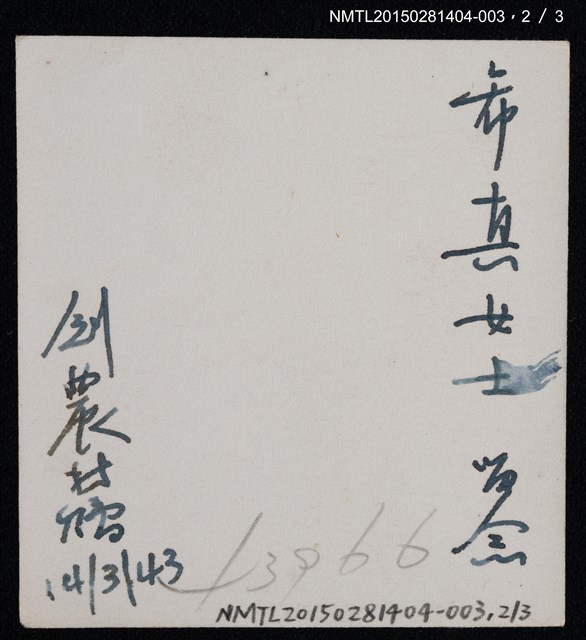 NMTL20150281404-003，2 / 3
希真女士 留念
劍農於
14/3/43
3966
NMTL20150281404-003,2/3